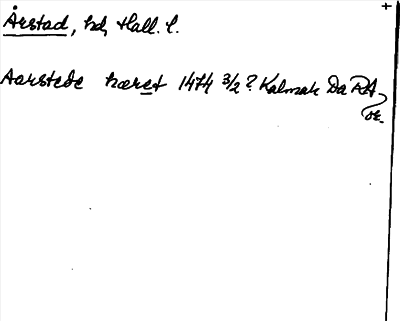 Årstad, hd, Hall. l.
Aarstede hæret 1474 3/2? Kalmak Da RA
or.